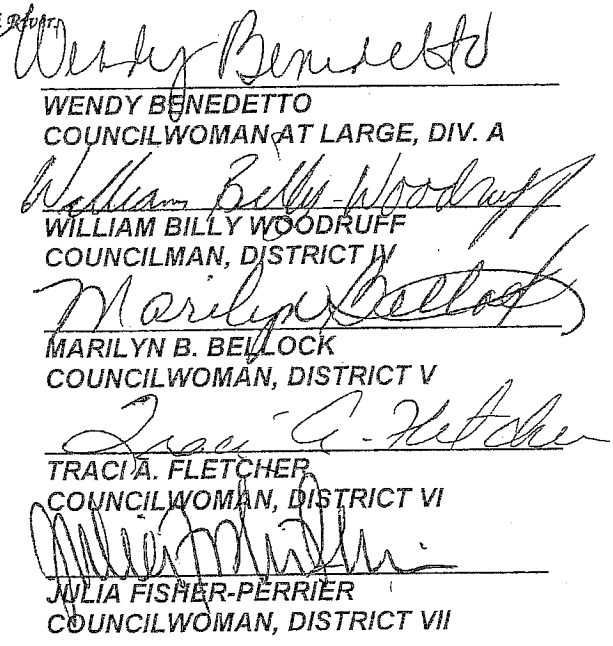 Wendy Benedetto
WENDY BENEDETTO
COUNCILWOMAN AT LARGE, DIV. A
William Billy Woodruff
WILLIAM BILLY WOODRUFF
COUNCILMAN, DISTRICT IV
Marilyn Bellock
MARILYN B. BELLOCK
COUNCILWOMAN, DISTRICT V
Traci A. Fletcher
TRACI A. FLETCHER
COUNCILWOMAN, DISTRICT VI
JULIA FISHER-PERRIER
COUNCILWOMAN, DISTRICT VII